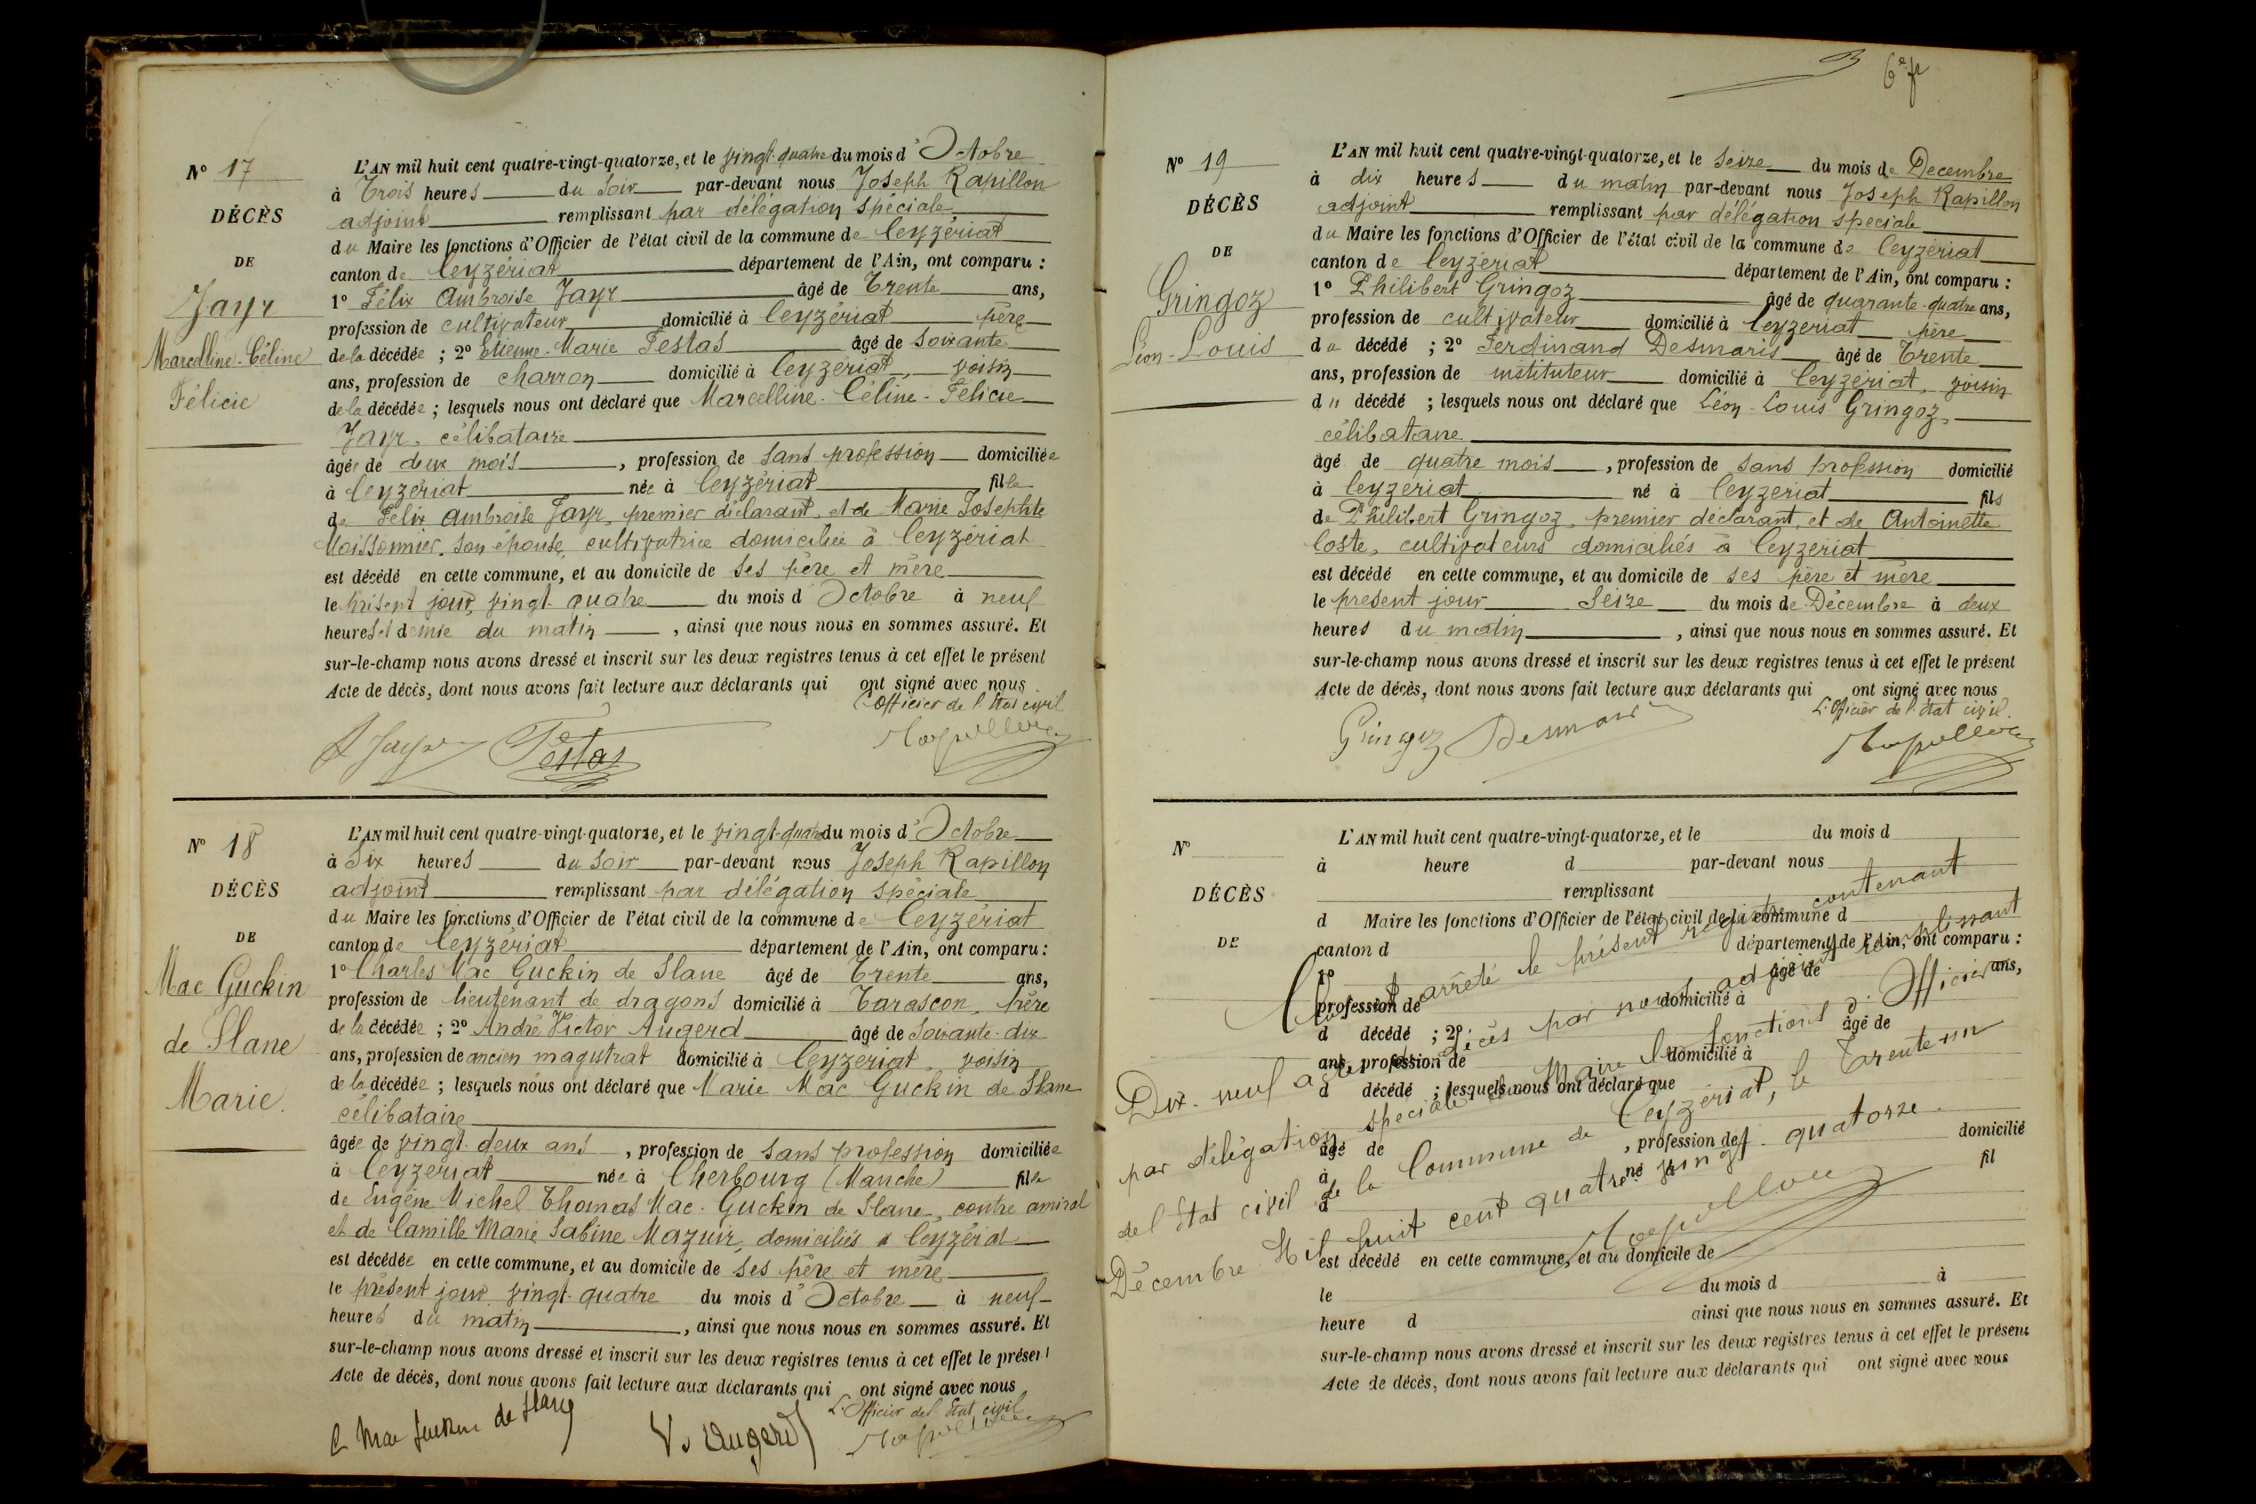 N° 17
DÉCÈS
DE
Jayr
Marcelline-Céline
Félicie
L'AN mil huit cent quatre-vingt-quatorze, et le vingt-quatre du mois d'Octobre
à Trois heures du soir par-devant nous Joseph Rapillon
adjoint remplissant par délégation spéciale,
du Maire les fonctions d'Officier de l'état civil de la commune de Ceyzériat
canton de Ceyzériat département de l'Ain, ont comparu :
1° Félix Ambroise Jayr âgé de Trente ans,
profession de cultivateur domicilié à Ceyzériat père
de la décédée ; 2° Etienne-Marie Festas âgé de soixante
ans, profession de charron domicilié à Ceyzériat, voisin
de la décédée ; lesquels nous ont déclaré que Marcelline-Céline-Félicie
Jayr, célibataire
âgée de deux mois, profession de sans profession domiciliée
à Ceyzériat née à Ceyzériat fille
de Félix Ambroise Jayr, premier déclarant, et de Marie Josephte
Moissonnier, son épouse, cultivatrice domiciliée à Ceyzériat
est décédé en cette commune, et au domicile de ses père et mère
le présent jour, vingt-quatre du mois d Octobre à neuf
heures et demie du matin, ainsi que nous nous en sommes assuré. Et
sur-le-champ nous avons dressé et inscrit sur les deux registres tenus à cet effet le présent
Acte de décès, dont nous avons fait lecture aux déclarants qui ont signé avec nous
L'officier de l'Etat civil
F Jayr Festas Rapillon
N° 18
DÉCÈS
DE
Mac Guckin
de Slane
Marie.
L'AN mil huit cent quatre-vingt-quatorze, et le vingt-quatre du mois d'Octobre
à Six heures du soir par-devant nous Joseph Rapillon
adjoint remplissant par délégation spéciale
du Maire les fonctions d'Officier de l'état civil de la commune de Ceyzériat
canton de Ceyzériat département de l'Ain, ont comparu :
1° Charles Mac Guckin de Slane âgé de Trente ans,
profession de lieutenant de dragons domicilié à Tarascon, frère
de la décédée ; 2° André Victor Augerd âgé de soixante-dix
ans, profession de ancien magistrat domicilié à Ceyzeriat, voisin
de la décédée ; lesquels nous ont déclaré que Marie Mac Guckin de Slane
célibataire
âgée de vingt-deux ans, profession de sans profession domiciliée
à Ceyzeriat née à Cherbourg (Manche) fille
de Eugène Michel Thomas Mac-Guckin de Slane, contre amiral
et de Camille Marie Sabine Mazuir, domiciliés à Ceyzériat
est décédée en cette commune, et au domicile de ses père et mère
le présent jour vingt-quatre du mois d'Octobre à neuf
heures du matin, ainsi que nous nous en sommes assuré. Et
sur-le-champ nous avons dressé et inscrit sur les deux registres tenus à cet effet le présent
Acte de décès, dont nous avons fait lecture aux déclarants qui ont signé avec nous
L'Officier de l'Etat civil
C Mac Guckin de Slane V. Augerd Rapillon
6e f
N° 19
DÉCÈS
DE
Gringoz
Léon-Louis
L'AN mil huit cent quatre-vingt-quatorze, et le seize du mois de Decembre
à dix heures du matin par-devant nous Joseph Rapillon
adjoint remplissant par délégation speciale
du Maire les fonctions d'Officier de l'état civil de la commune de Ceyzériat
canton de Ceyzériat département de l'Ain, ont comparu :
1° Philibert Gringoz âgé de quarante-quatre ans,
profession de cultivateur domicilié à Ceyzeriat père
du décédé ; 2° Ferdinand Desmaris âgé de Trente
ans, profession de instituteur domicilié à Ceyzériat, voisin
du décédé ; lesquels nous ont déclaré que Léon-Louis Gringoz,
célibataire
âgé de quatre mois, profession de sans profession domicilié
à Ceyzériat né à Ceyzeriat fils
de Philibert Gringoz, premier déclarant, et de Antoinette
Coste, cultivateurs domiciliés à Ceyzeriat
est décédé en cette commune, et au domicile de ses père et mère
le present jour Seize du mois de Décembre à deux
heures du matin, ainsi que nous nous en sommes assuré. Et
sur-le-champ nous avons dressé et inscrit sur les deux registres tenus à cet effet le présent
Acte de décès, dont nous avons fait lecture aux déclarants qui ont signé avec nous
L'Officier de l'état civil.
Gringoz Desmaris Rapillon
N°
DÉCÈS
DE
L'AN mil huit cent quatre-vingt-quatorze, et le du mois d
à heure d par-devant nous
remplissant
d Maire les fonctions d'Officier de l'état civil de la commune d
canton d département de l'Ain, ont comparu :
1° âgé de ans,
profession de domicilié à
d décédé ; 2° âgé de
ans, profession de domicilié à
d décédé ; lesquels nous ont déclaré que
âgé de , profession de domicilié
à né à fil
d
est décédé en cette commune, et au domicile de
le du mois d à
heure d ainsi que nous nous en sommes assuré. Et
sur-le-champ nous avons dressé et inscrit sur les deux registres tenus à cet effet le présent
Acte de décès, dont nous avons fait lecture aux déclarants qui ont signé avec nous
Clos et arrêté le présent registre contenant
Dix-neuf actes de décès par nous adjoint remplissant
par délégation speciale du Maire les fonctions d'Officier
de l'Etat civil de la Commune de Ceyzériat, le Trente-un
Décembre Mil huit cent quatre-vingt-quatorze.
Rapillon